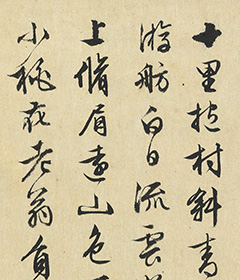 十里拕村斜青
游舫白日流雲
上脩眉遠山色
小穐衣老翁負